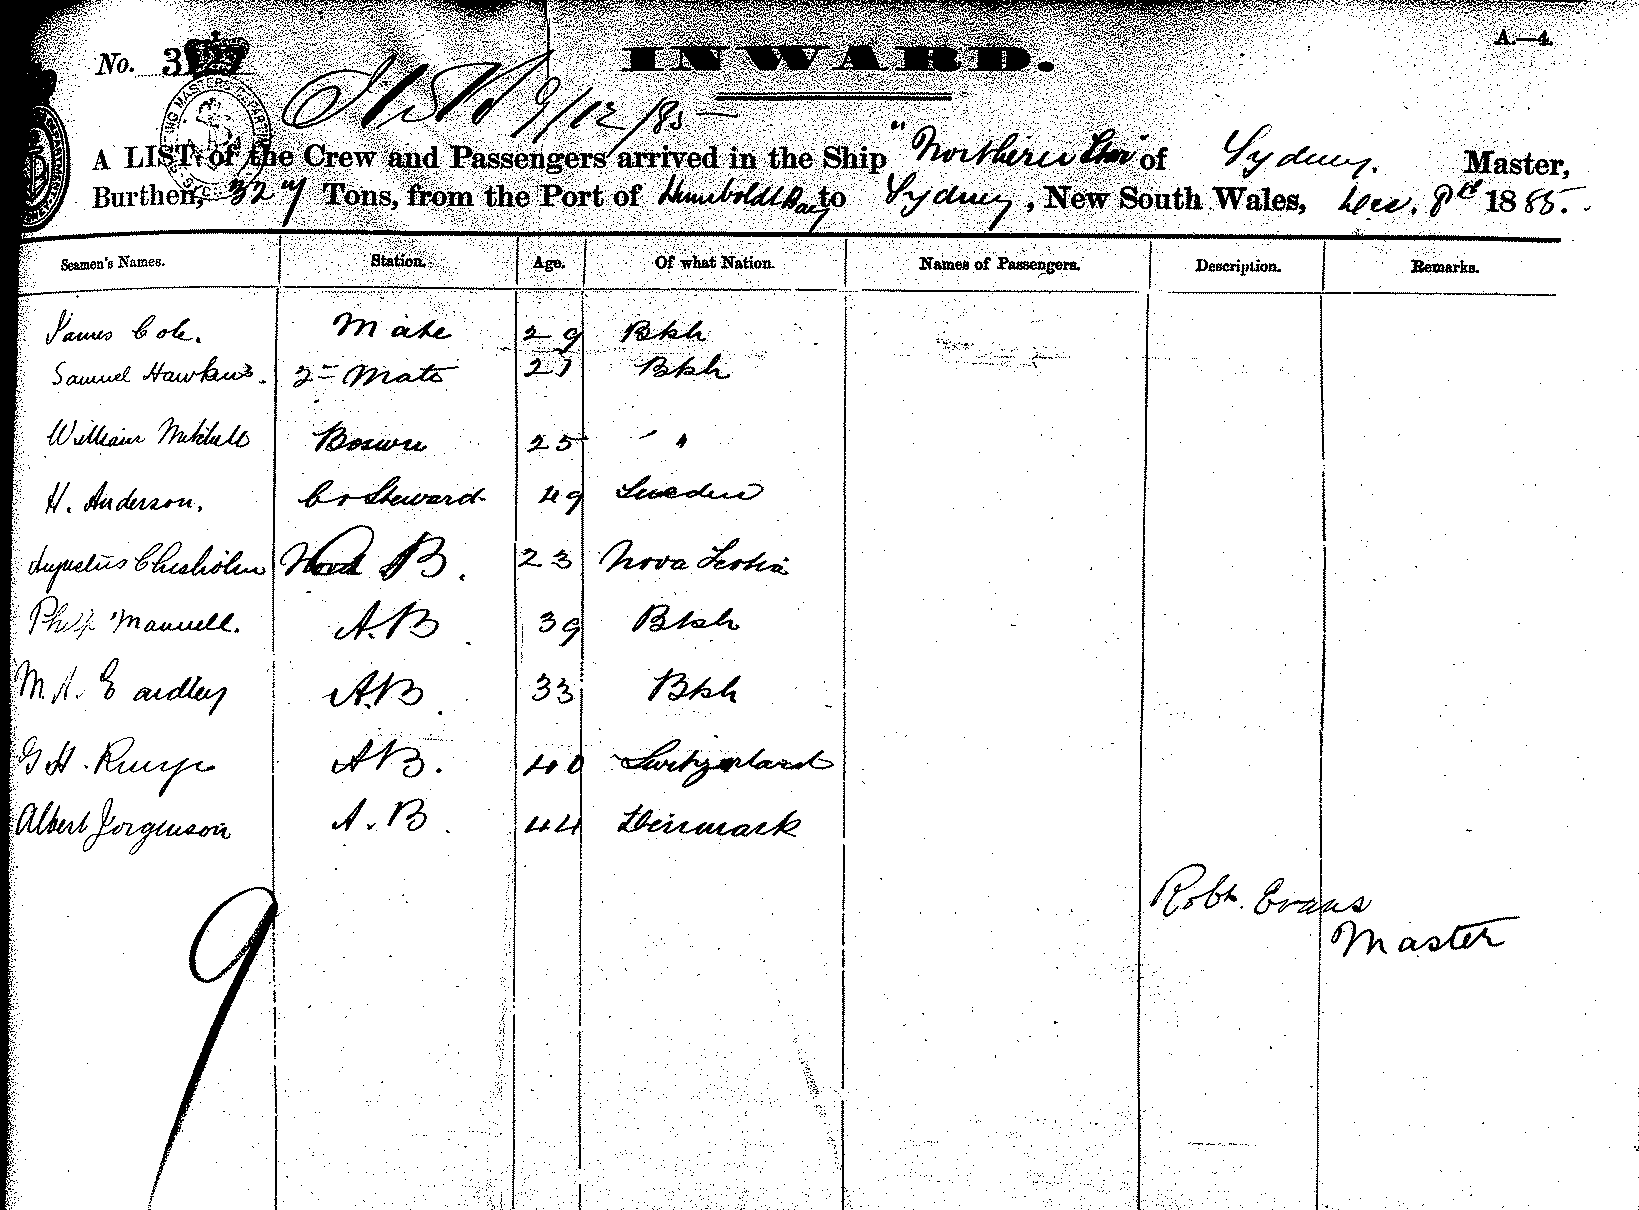 No. 3
INWARD.
A.—4.
9/12/85
A LIST of the Crew and Passengers arrived in the Ship "Northern Star" of Sydney. Master,
Burthen, 327 Tons, from the Port of Humboldt Bay to Sydney, New South Wales, Dec. 8th 1885.
Seamen's Names. Station. Age. Of what Nation. Names of Passengers. Description. Remarks.
James Cole. Mate 29 Btsh
Samuel Hawkins. 2nd Mate 27 Btsh
William Mitchell Boswn 25 " "
H. Anderson. Co Steward 49 Sweden
Augustus Chisholm AB. 23 Nova Scotia
Philip Manuell. A.B 39 Btsh
M. A. Eardley A.B. 33 Btsh
G H. AB. 40 Switzerland
Albert Jorgenson A.B. 44 Denmark
9
Robt. Evans
Master